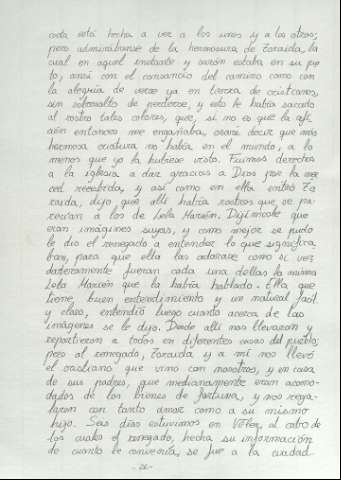 cada está hecha a ver a los unos y a los otros;
pero admirábanse de la hermosura de Zoraida, la
cual en aquel instante y sazón estaba en su pun
to, ansí con el cansancio del camino como con
la alegría de verse ya en tierra de cristianos,
sin sobresalto de perderse, y esto le había sacado
al rostro tales colores, que, si no es que la afi
ción entonces me engañaba, osaré decir que más
hermosa criatura no había en el mundo, a lo
menos que yo la hubiese visto. Fuimos derechos
a la iglesia a dar gracias a Dios por la mer
ced recebida, y así como en ella entró Zo
raida, dijo que allí había rostros que se pa-
recían a los de Lela Marién. Dijímosle que
eran imágines suyas, y como mejor se pudo
le dio el renegado a entender lo que significa
ban, para que ella las adorase como si ver
daderamente fueran cada una dellas la misma
Lela Marién que la había hablado. Ella que
tiene buen entendimiento y un natural fácil
y claro, entendió luego cuanto acerca de las
imágenes se le dijo. Desde allí nos llevaron y
repartieron a todos en diferentes casas del pueblo;
pero al renegado, Zoraida y a mí nos llevó
el cristiano que vino con nosotros, y en casa
de sus padres, que medianamente eran acomo-
dados de los bienes de fortuna, y nos rega-
laron con tanto amor como a su mismo
hijo. Seis días estuvimos en Vélez, al cabo de
los cuales el renegado, hecha su información
de cuanto le convenía, se fue a la ciudad
-26-